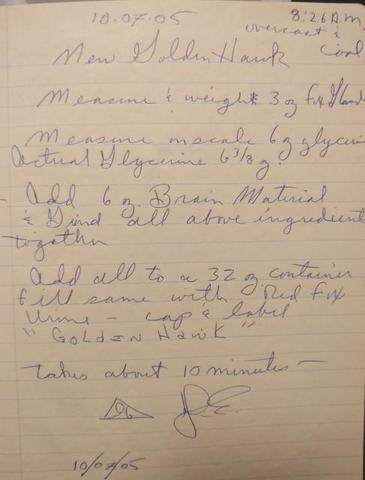 10.07.05 8:26 A.M.
overcast &
Cool
New Golden Hawk
Measure & weight 3 oz Fox Glands
Measure on scale 6 oz glycerine
Actual Glycerine 6 3/8 oz.
Add 6 oz Brain Material
& Grind all above ingredients
together
Add all to a 32 oz container
fill same with Red Fox
Urine - cap & label
"GOLDEN HAWK"
Takes about 10 minutes -
10/07/05